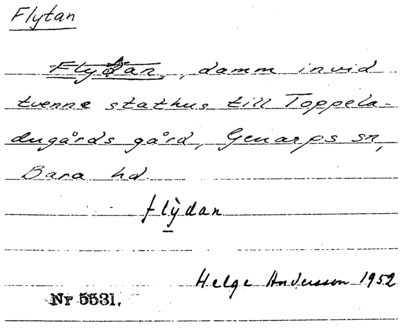 Flytan
Flytan, damm invid
tvenne stathus till Toppela-
dugårds gård, Genarps sn,
Bara hd.
flỳdan
Helge Andersson 1952
Nr 5531.